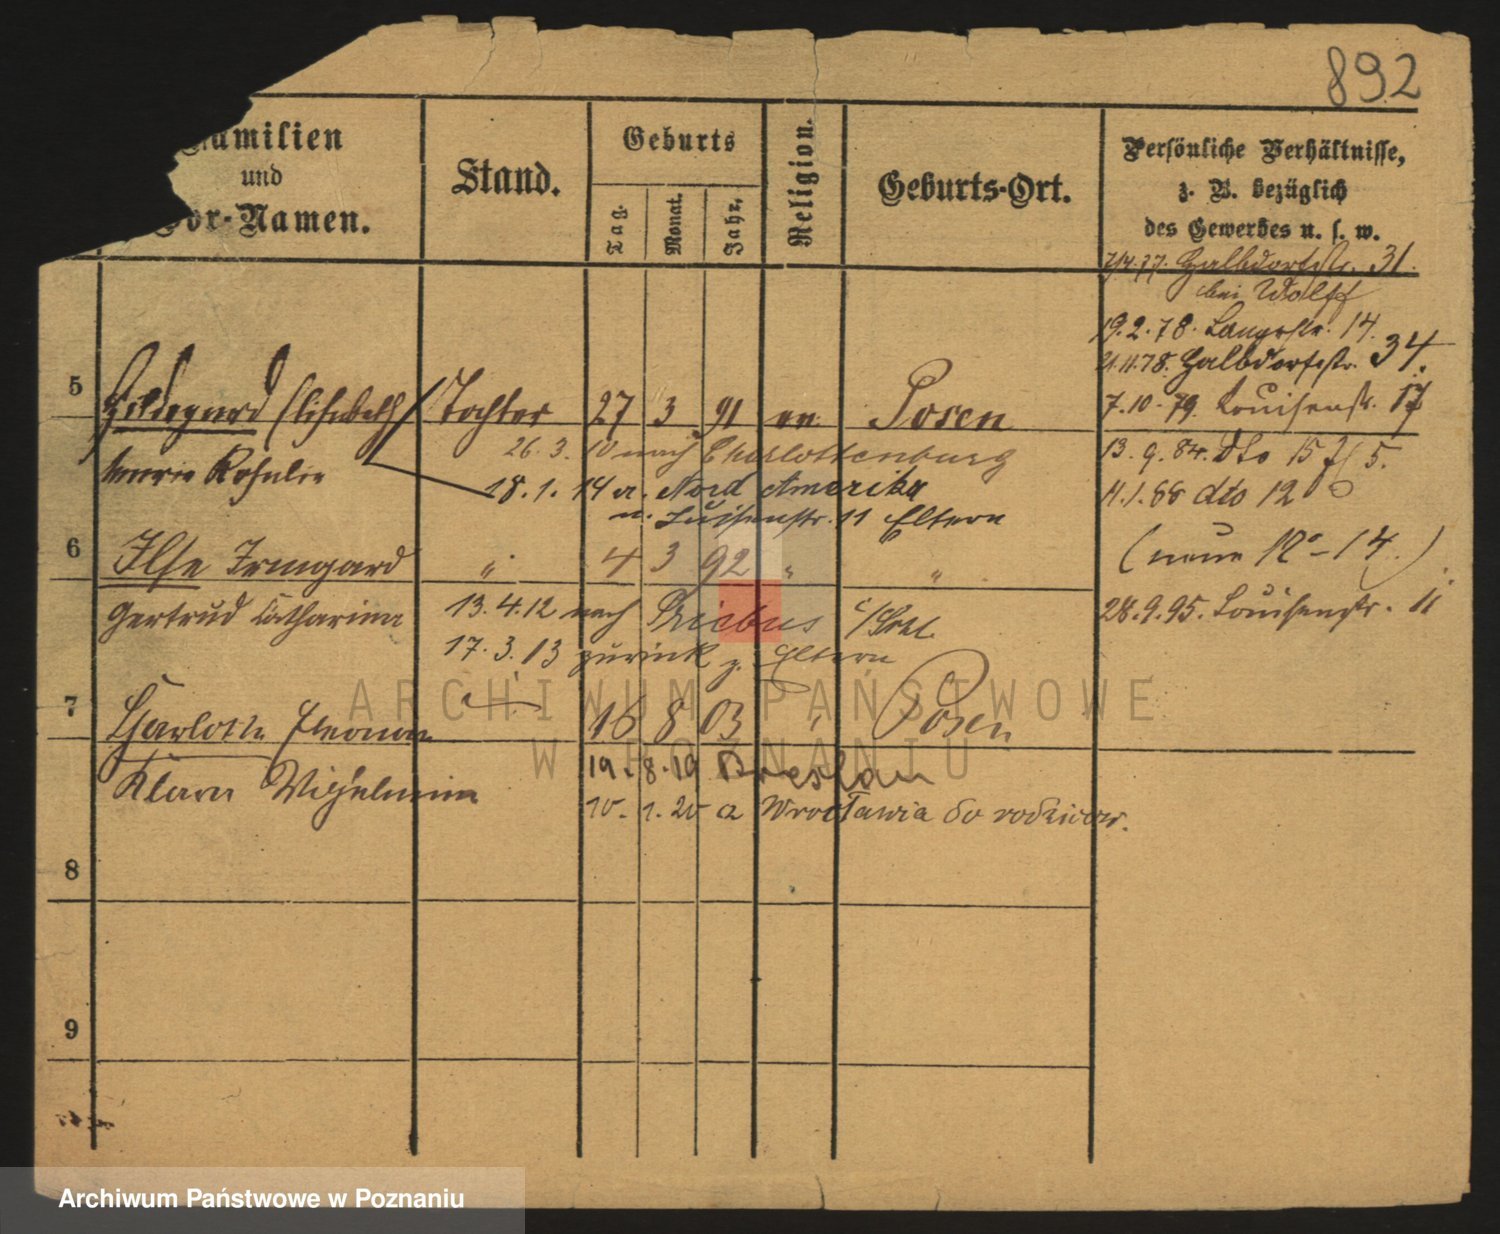 892
Familien
und
Vor-Namen.
Stand.
Geburts
Tag.
Monat.
Jahr.
Religion.
Geburts-Ort.
Persönliche Verhältnisse,
z. B. bezüglich
des Gewerbes u. s. w.
7/4.77. Halbdorfstr. 31.
bei Wolff
19.2.78. Langestr. 14.
21.11.78. Halbdorfstr. 34.
7.10.79. Louisenstr. 17
13.9.84. dto 15
11.1.88 dto 12
(neue 12 - 14.)
28.9.95. Louisenstr. 11
5 Hildegard Elisabeth Tochter 27 3 91 ev. Posen
26.3.10 nach Charlottenburg
Marie Rosalie
18.1.14 a. Nord Amerika
n. Luisenstr. 11 Eltern
6 Ilse Irmgard " 4 3 92 " "
Gertrud Catharina 13.4.12 nach Priebus
17.3.13 zurück z. Eltern
7 Charlotte Eleonore 16 8 03 " Posen
19.8.19 Breslau
Klara Wilhelmine
10.1.20 a Wrocławia do rodziców.
8
9
ARCHIWUM PAŃSTWOWE
W POZNANIU
Archiwum Państwowe w Poznaniu